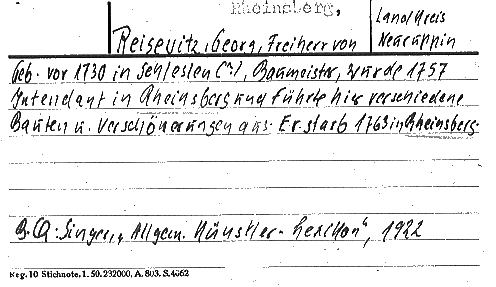 Rheinsberg,
Landkreis
Reisewitz, Georg, Freiherr von
Neuruppin
Geb. vor 1730 in Schlesien (?), Baumeister, wurde 1757
Intendant in Rheinsberg und führte hier verschiedene
Bauten u. Verschönerungen aus. Er starb 1763 in Rheinsberg.
B.Q: Singer, „Allgem. Künstler-Lexikon", 1922
Neg. 10 Stichnote. 1. 50. 232000, A. 803. S. 4662